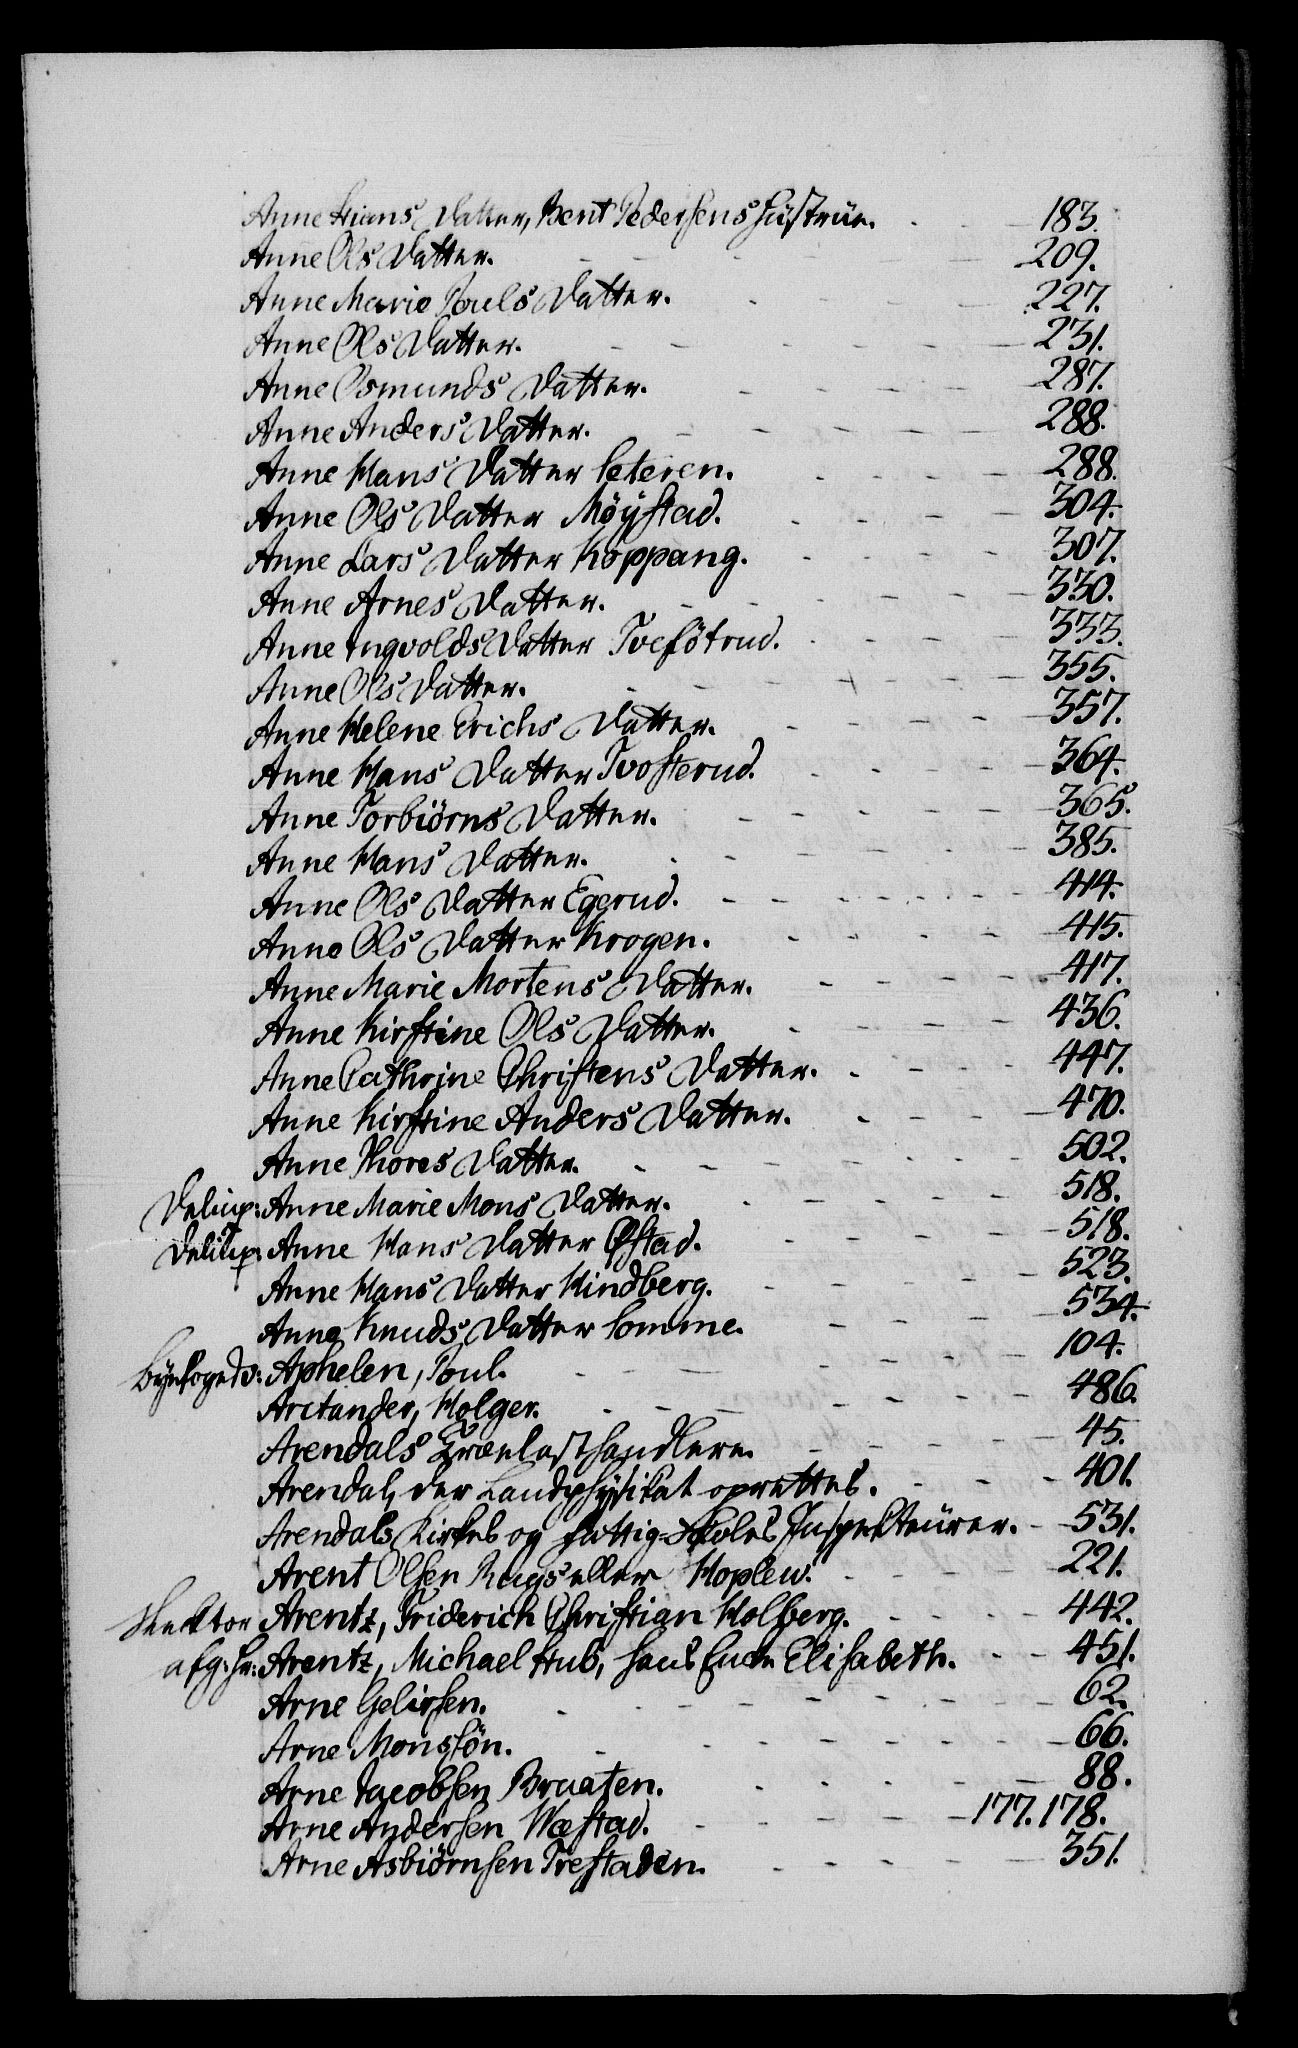 Anne Hans Datter, Bent Pedersens Hustrüe. 183.
Anne Ols Datter. 209.
Anne Marie Pouls Datter. 227.
Anne Ols Datter. 231.
Anne Osmunds Datter. 287.
Anne Anders Datter. 288.
Anne Hans Datter Seteren. 288.
Anne Ols Datter Möÿstad. 304.
Anne Lars Datter Koppang. 307.
Anne Arnes Datter. 330.
Anne Ingvolds Datter Tvefötrud. 333.
Anne Ols Datter. 355.
Anne Helene Erichs Datter. 357.
Anne Hans Datter Tvosterud. 364.
Anne Torbiörns Datter. 365.
Anne Hans Datter. 385.
Anne Ols Datter Egerud. 414.
Anne Ols Datter Krogen. 415.
Anne Marie Mortens Datter. 417.
Anne Kirstine Ols Datter. 436.
Anne Cathrine Christens Datter. 447.
Anne Kirstine Anders Datter. 470.
Anne Thores Datter. 502.
Delinq: Anne Marie Mons Datter. 518.
Delinq: Anne Hans Datter Østad. 518.
Anne Hans Datter Hindberg. 523.
Anne Knuds Datter Somme. 534.
Byefogeds: Aphelen, Poul. 104.
Arctander, Holger. 486.
Arendals Trælasthandlere. 45.
Arendal, der Landphysikat oprettes. 401.
Arendals Kirkes og Fattig-Skoles Inspekteürer. 531.
Arent Olsen Rugs eller Hoplew. 221.
Rektor Arentz, Friderich Christian Holberg. 442.
afg: Hr: Arentz, Michael Hub, hans Enke Elisabeth. 451.
Arne Gelirsen. 62.
Arne Monssön. 66.
Arne Jacobsen Braaten. 88.
Arne Andersen Wæstad. 177. 178.
Arne Asbiörnsen Trestaden. 351.